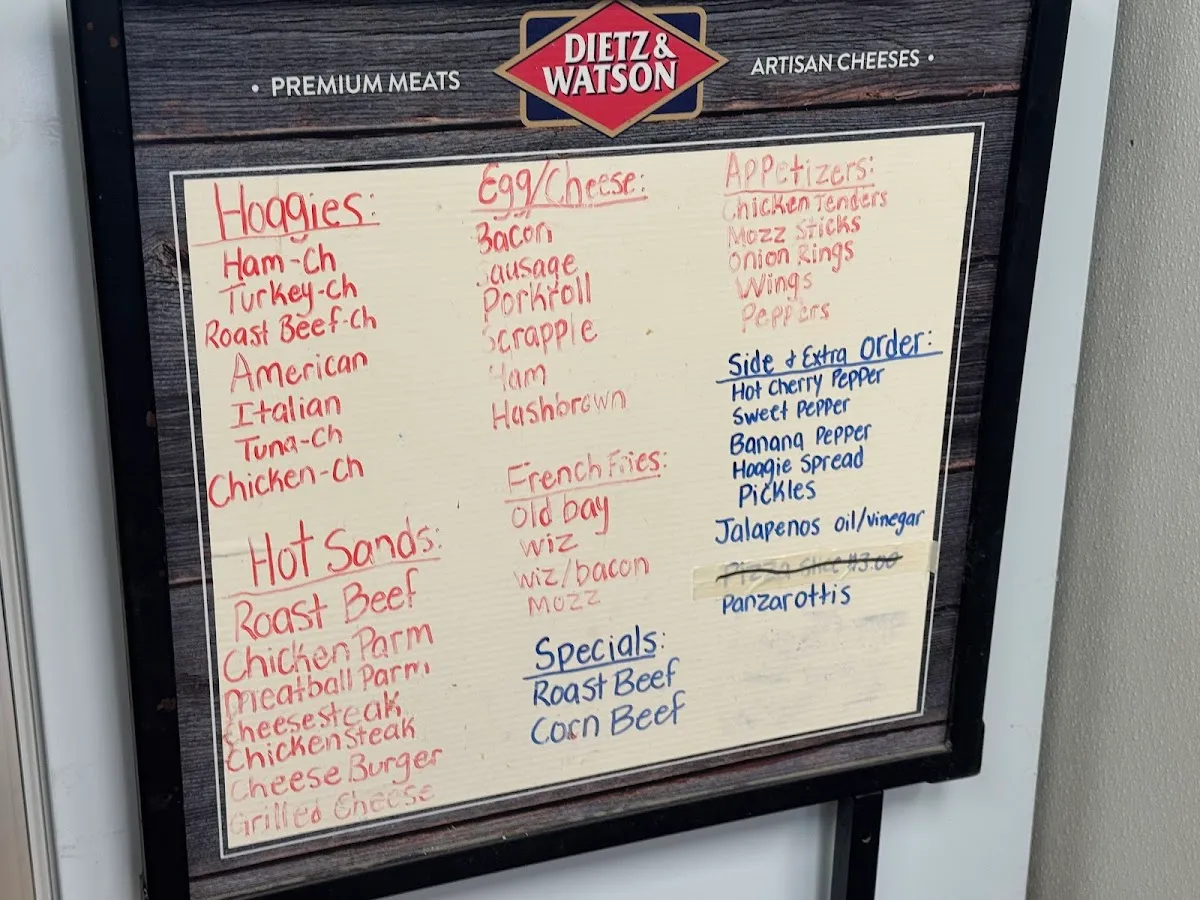 • PREMIUM MEATS
DIETZ &
WATSON
ARTISAN CHEESES •
Hoagies:
Ham-Ch
Turkey-Ch
Roast Beef-Ch
American
Italian
Tuna-Ch
Chicken-Ch
Hot Sands:
Roast Beef
Chicken Parm
Meatball Parm.
Cheesesteak
Chickensteak
Cheese Burger
Grilled Cheese
Egg/Cheese:
Bacon
Sausage
Porkroll
Scrapple
Ham
Hashbrown
French Fries:
Old bay
Wiz
Wiz/bacon
Mozz
Specials:
Roast Beef
Corn Beef
Appetizers:
Chicken Tenders
Mozz Sticks
Onion Rings
Wings
Peppers
Side & Extra Order:
Hot Cherry Pepper
Sweet Pepper
Banana Pepper
Hoagie Spread
Pickles
Jalapenos oil/vinegar
Pizza Slice $3.00
Panzarottis